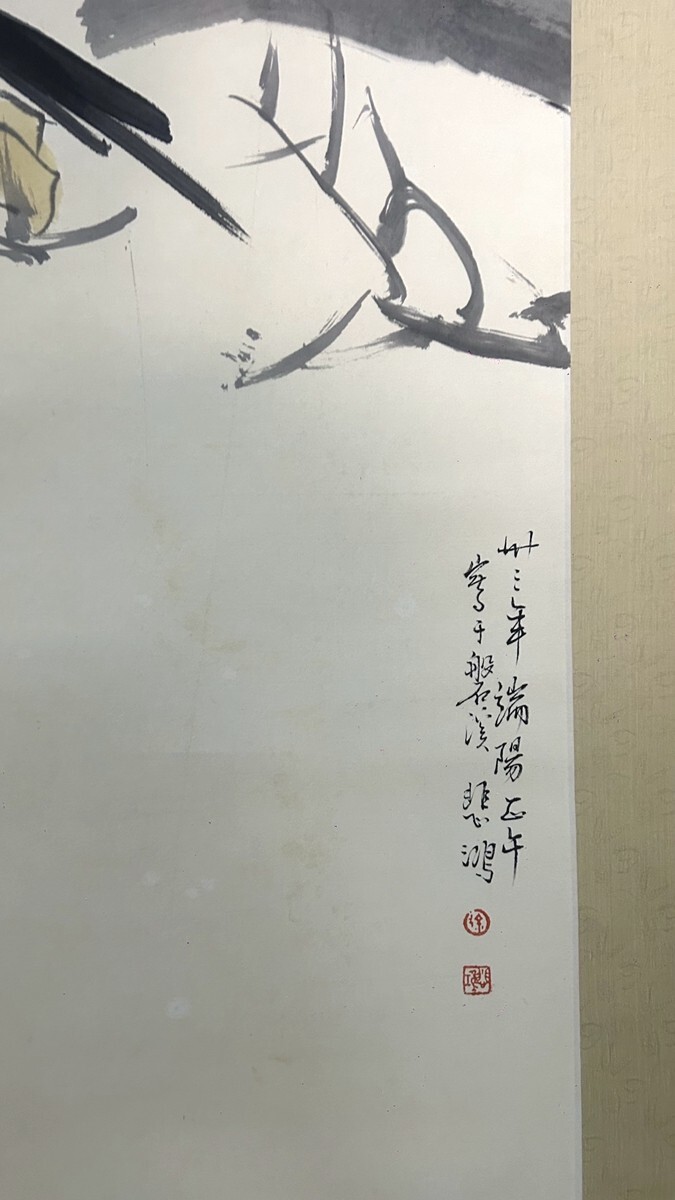 卅三年端陽正午
寫于磐溪 悲鴻
徐